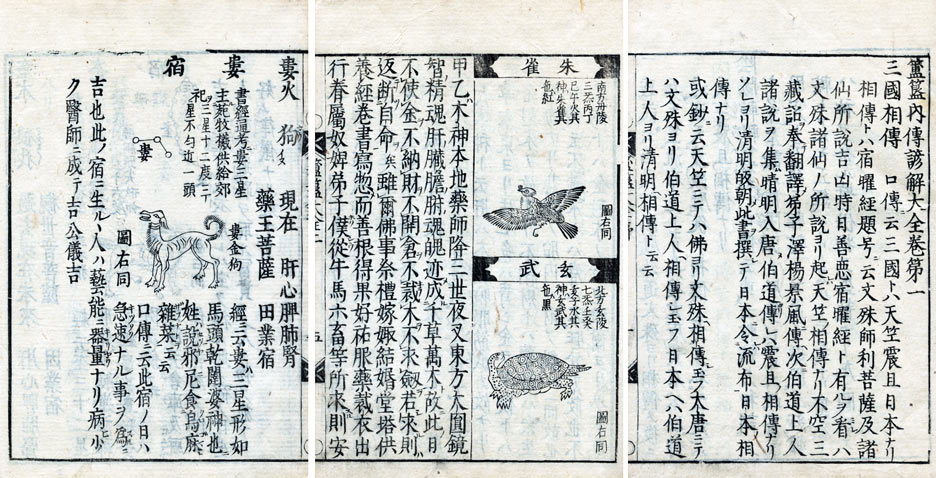 簠簋内傳諺解大全卷第一
三國相傳　口傳云三國トハ天竺震旦日本ナリ
相傳トハ宿曜經題号ニ云文殊師利菩薩及諸
仙所説吉凶時日善悪宿曜經ト有ルヲ看ハ
文殊諸仙ノ所説ヨリ起天竺相傳ナリ不空三
藏詔奉翻譯弟子澤楊景風傳次伯道上人
諸説ヲ集晴明入唐伯道傳レハ震旦ノ相傳ナリ
ソレヨリ清明皈朝此書撰シテ日本令流布日本相
傳ナリ
或鈔云天竺ニテハ佛ヨリ文殊相傳シ玉フ大唐ニテ
ハ文殊ヨリ伯道上人ヘ相傳シ玉フ日本ヘハ伯道
上人ヨリ清明相傳ト云云
朱雀
南方丹陵
三炁丙丁
巳午火其
神朱雀其
色紅
圖右同
玄武
北方玄陵
七炁壬癸
亥子水其
神玄武其
色黒
圖右同
甲乙木神本地藥師降三世夜叉東方大圓鏡
智精魂肝臓膽腑魂魄迹成千草萬木故此日
不使金不納財不開倉不裁木不求劔若求則
返斷自命矣雖爾佛事祭禮嫁娵結婚堂塔供
養經卷書寫惣而善根得果好祐服藥裁衣出
行眷屬奴婢弟子僕從牛馬六畜等所求則安
婁火狗　現在　肝心脾肺腎
藥王菩薩　田業宿
婁宿
書經通考婁三星
主苑牧犠供給郊
祀三星十二度ニテ
星不匀近一頭
婁
婁金狗
圖右同
經ニ云婁ハ三星形如
馬頭乾闥婆神也
姓ハ説邪尼食烏麻
雜菜云云
口傳ニ云此宿ノ日ハ
急速ナル事ヲ爲ニ
吉也此ノ宿ニ生ル丶人ハ藝能ニ器量ナリ病少
ク醫師ニ成テ吉公儀吉